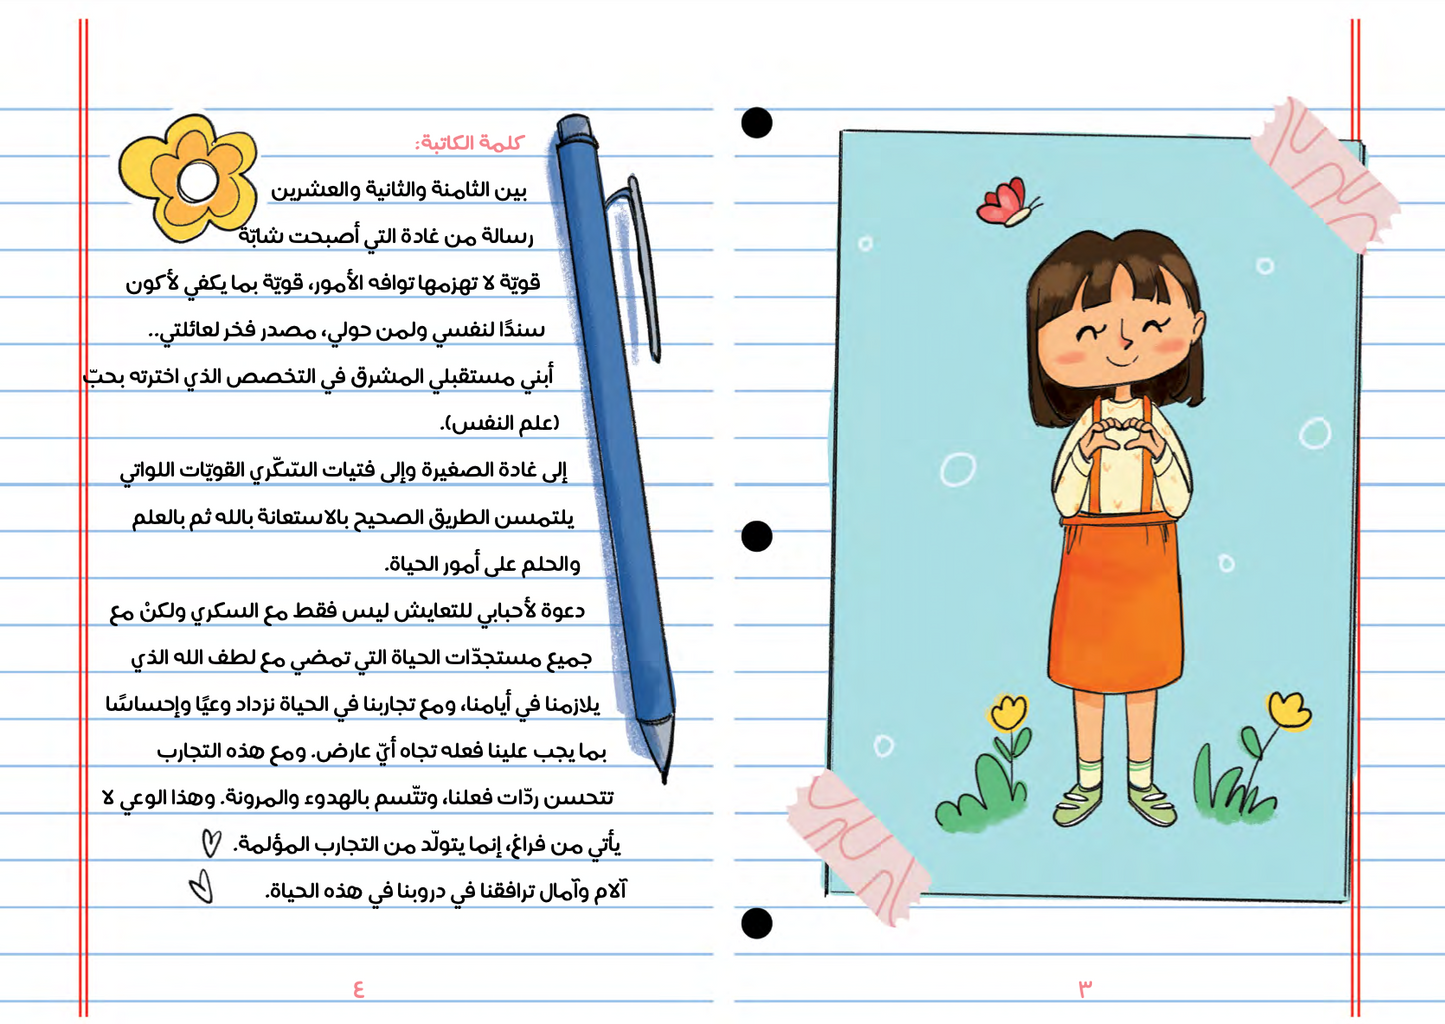 ٣
كلمة الكاتبة:
بين الثامنة والثانية والعشرين
رسالة من غادة التي أصبحت شابّة
قويّة لا تهزمها توافه الأمور، قويّة بما يكفي لأكون
سندًا لنفسي ولمن حولي، مصدر فخر لعائلتي..
أبني مستقبلي المشرق في التخصص الذي اخترته بحبّ
(علم النفس).
إلى غادة الصغيرة وإلى فتيات السّكّري القويّات اللواتي
يلتمسن الطريق الصحيح بالاستعانة بالله ثم بالعلم
والحلم على أمور الحياة.
دعوة لأحبابي للتعايش ليس فقط مع السكري ولكنْ مع
جميع مستجدّات الحياة التي تمضي مع لطف الله الذي
يلازمنا في أيامنا، ومع تجاربنا في الحياة نزداد وعيًا وإحساسًا
بما يجب علينا فعله تجاه أيّ عارض. ومع هذه التجارب
تتحسن ردّات فعلنا، وتتّسم بالهدوء والمرونة. وهذا الوعي لا
يأتي من فراغ، إنما يتولّد من التجارب المؤلمة.
آلام وآمال ترافقنا في دروبنا في هذه الحياة.
٤